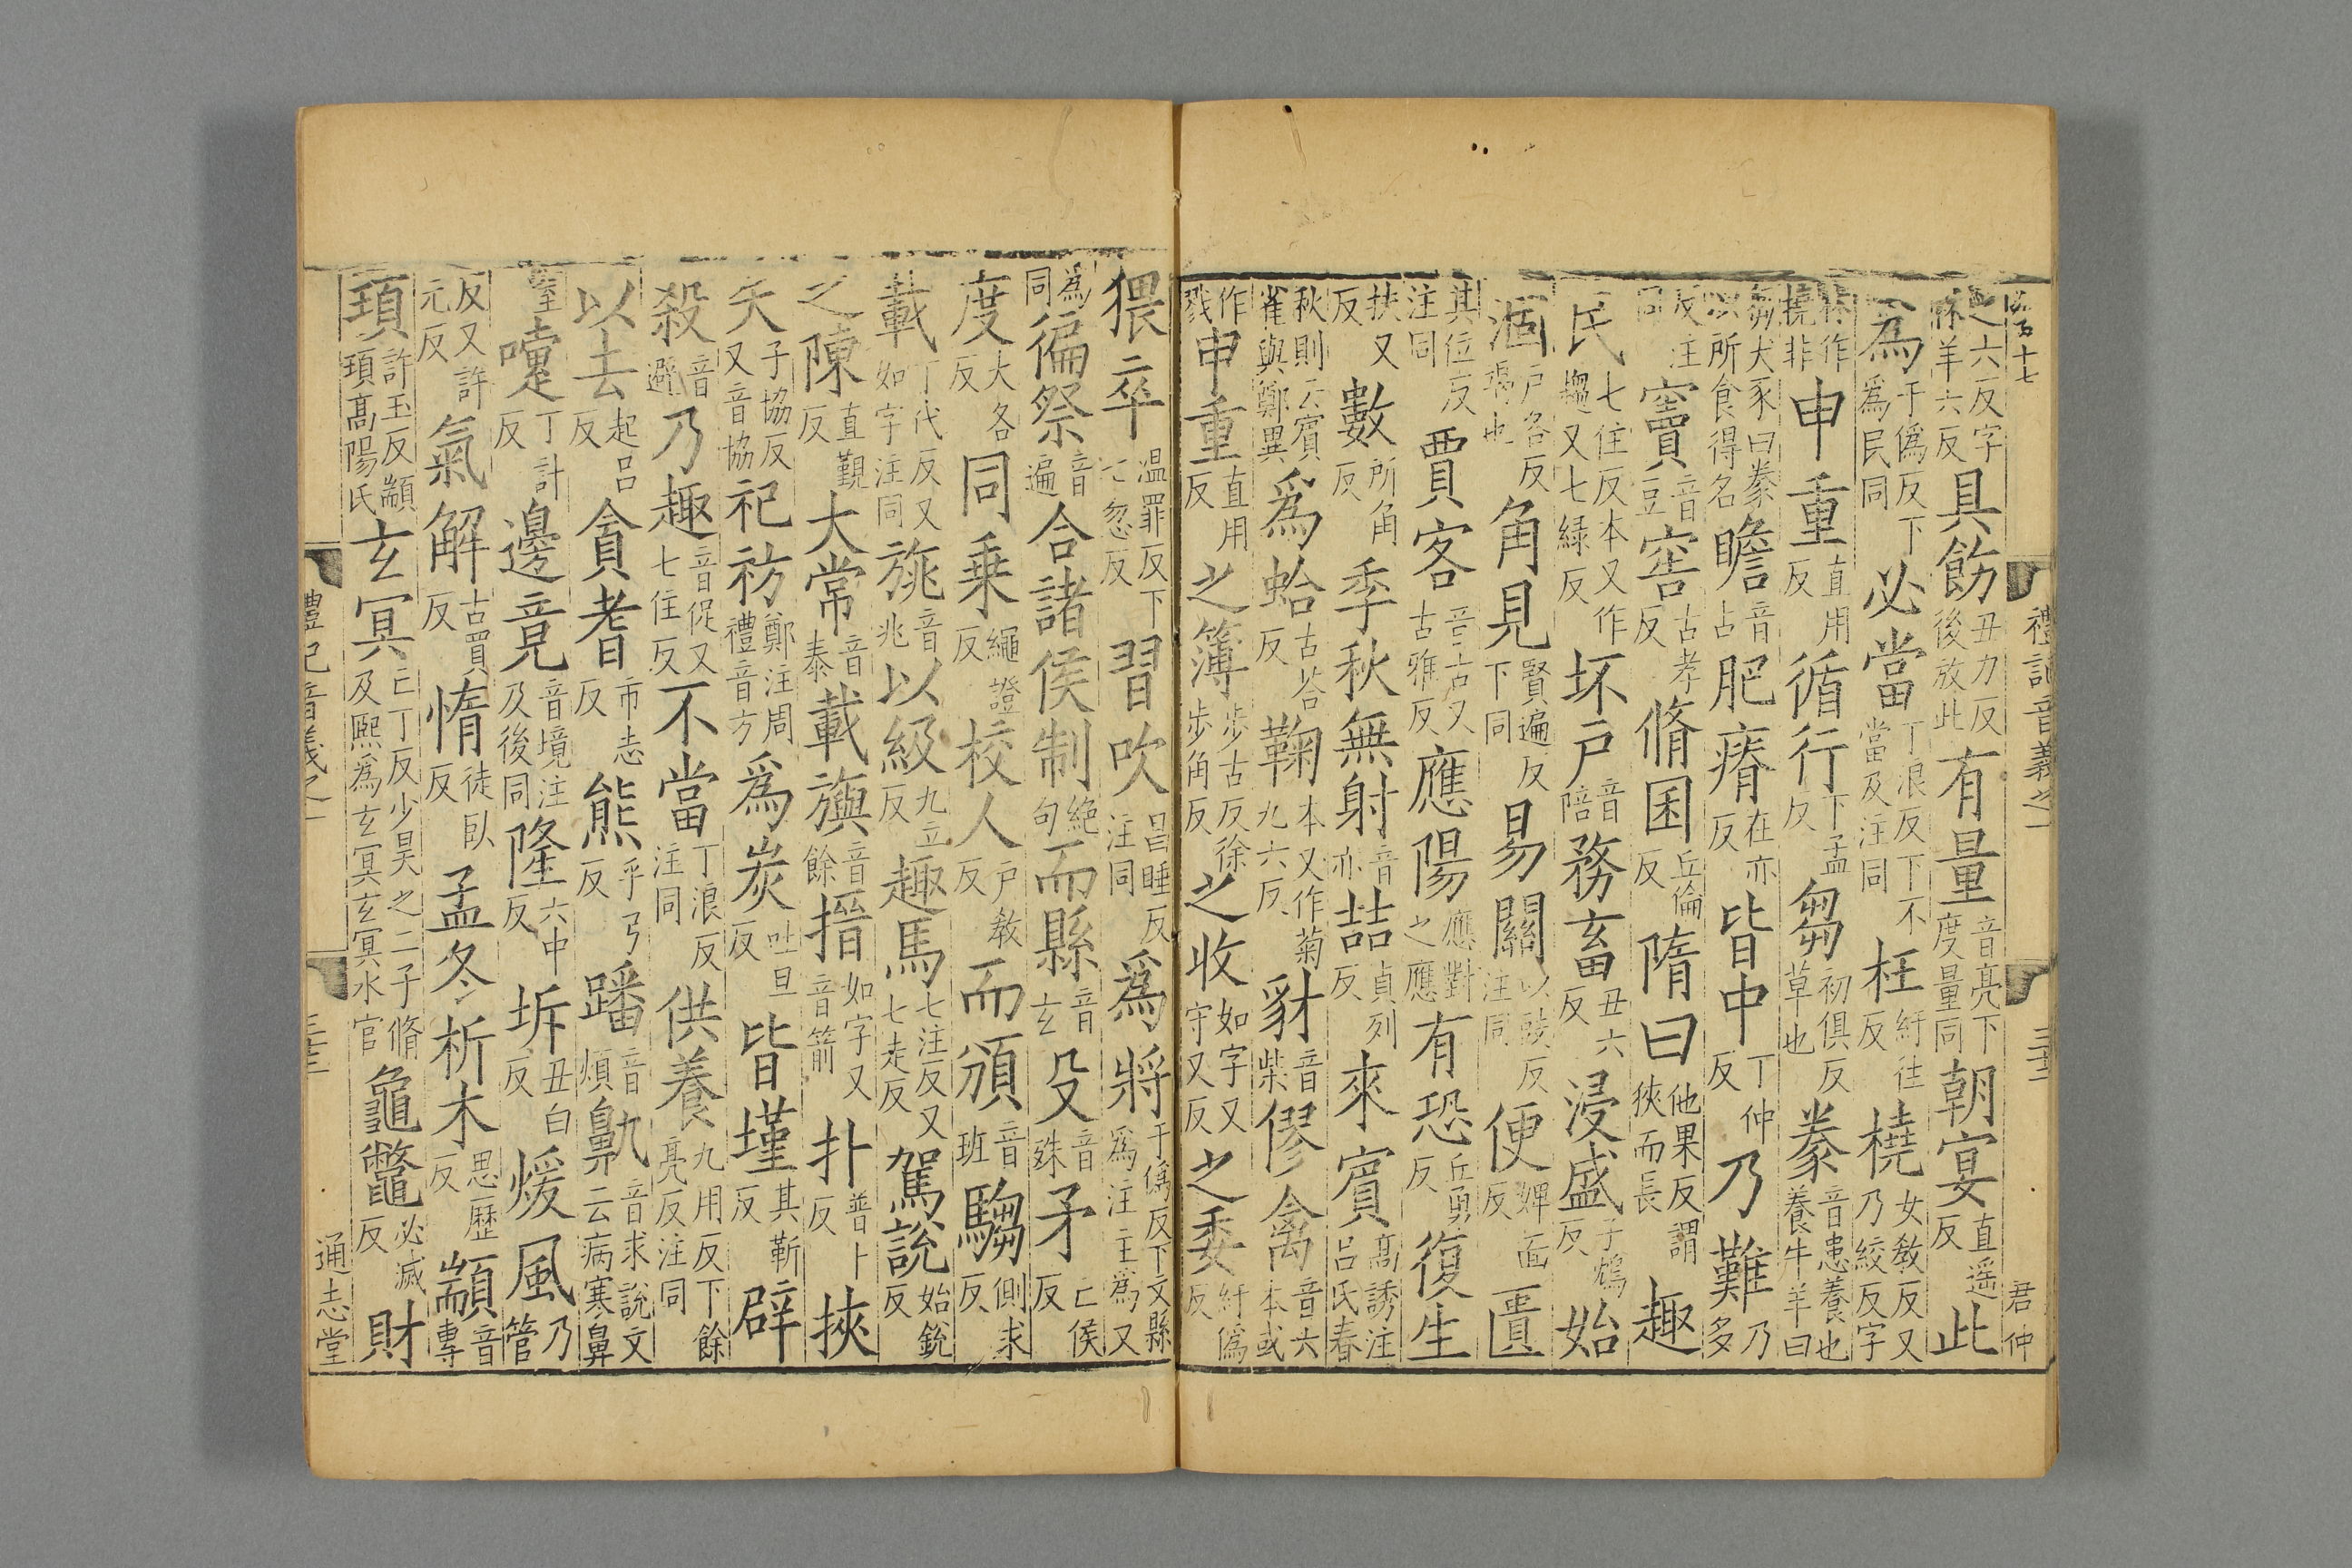 禮記音義之一 君仲
之六反字林羊六反具飭丑力反後放此有量音亮下度量同朝宴直遥反此
為于僞反下為民同必當丁浪反下不當及注同枉紆往反橈女敎反又乃絞反字
林作撓非申重直用反循行下孟反芻初俱反草也豢音患養也養牛羊曰
芻犬豕曰豢以所食得名瞻音占肥瘠在亦反皆中丁仲反乃難乃多
反注同竇音豆窖古孝反脩囷丘倫反隋曰他果反謂狹而長趣
民七住反本又作趨又七緑反坏戸音陪務畜丑六反浸盛子鴆反始
涸戸各反竭也角見賢遍反下同易關以豉反注同便婢面反匱
其位反注同賈客音古又古雅反應陽應對之應有恐丘勇反復生
扶又反數所角反季秋無射音亦喆貞列反來賓髙誘注吕氏春
秋則云賓雀與鄭異爲蛤古荅反鞠本又作菊九六反豺音柴僇禽音六本或
作戮申重直用反之簿步古反徐步角反之收如字又守又反之委紆僞反
猥卒温罪反下七忽反習吹昌睡反注同爲將于僞反下文縣爲注主爲又
為同徧祭音遍合諸侯制絶句而縣音玄殳音殊矛亡侯反
度大各反同乗繩證反校人戸敎反而頒音班騶側求反
載丁代反又如字注同旐音兆以級九立反趣馬七注反又七走反駕說始銳反
之陳直覲反大常音泰載旟音餘搢如字又音箭扑普卜反挾
矢子協反又音協祀祊鄭注周禮音方爲炭吐旦反皆墐其靳反辟
殺音避乃趣音促又七住反不當丁浪反注同供養九用反下餘亮反注同
以去起吕反貪耆市志反熊乎弓反蹯音煩鼽音求說文云病寒鼻
窒嚏丁計反邊竟音境注及後同隆六中反坼丑白反煖風乃管
反又許元反氣解古買反惰徒卧反孟冬析木思歷反顓音專
頊許玉反顓頊髙陽氏玄冥亡丁反少昊之二子脩及熙爲玄冥玄冥水官龜鼈必滅反財
禮記音義之一 通志堂